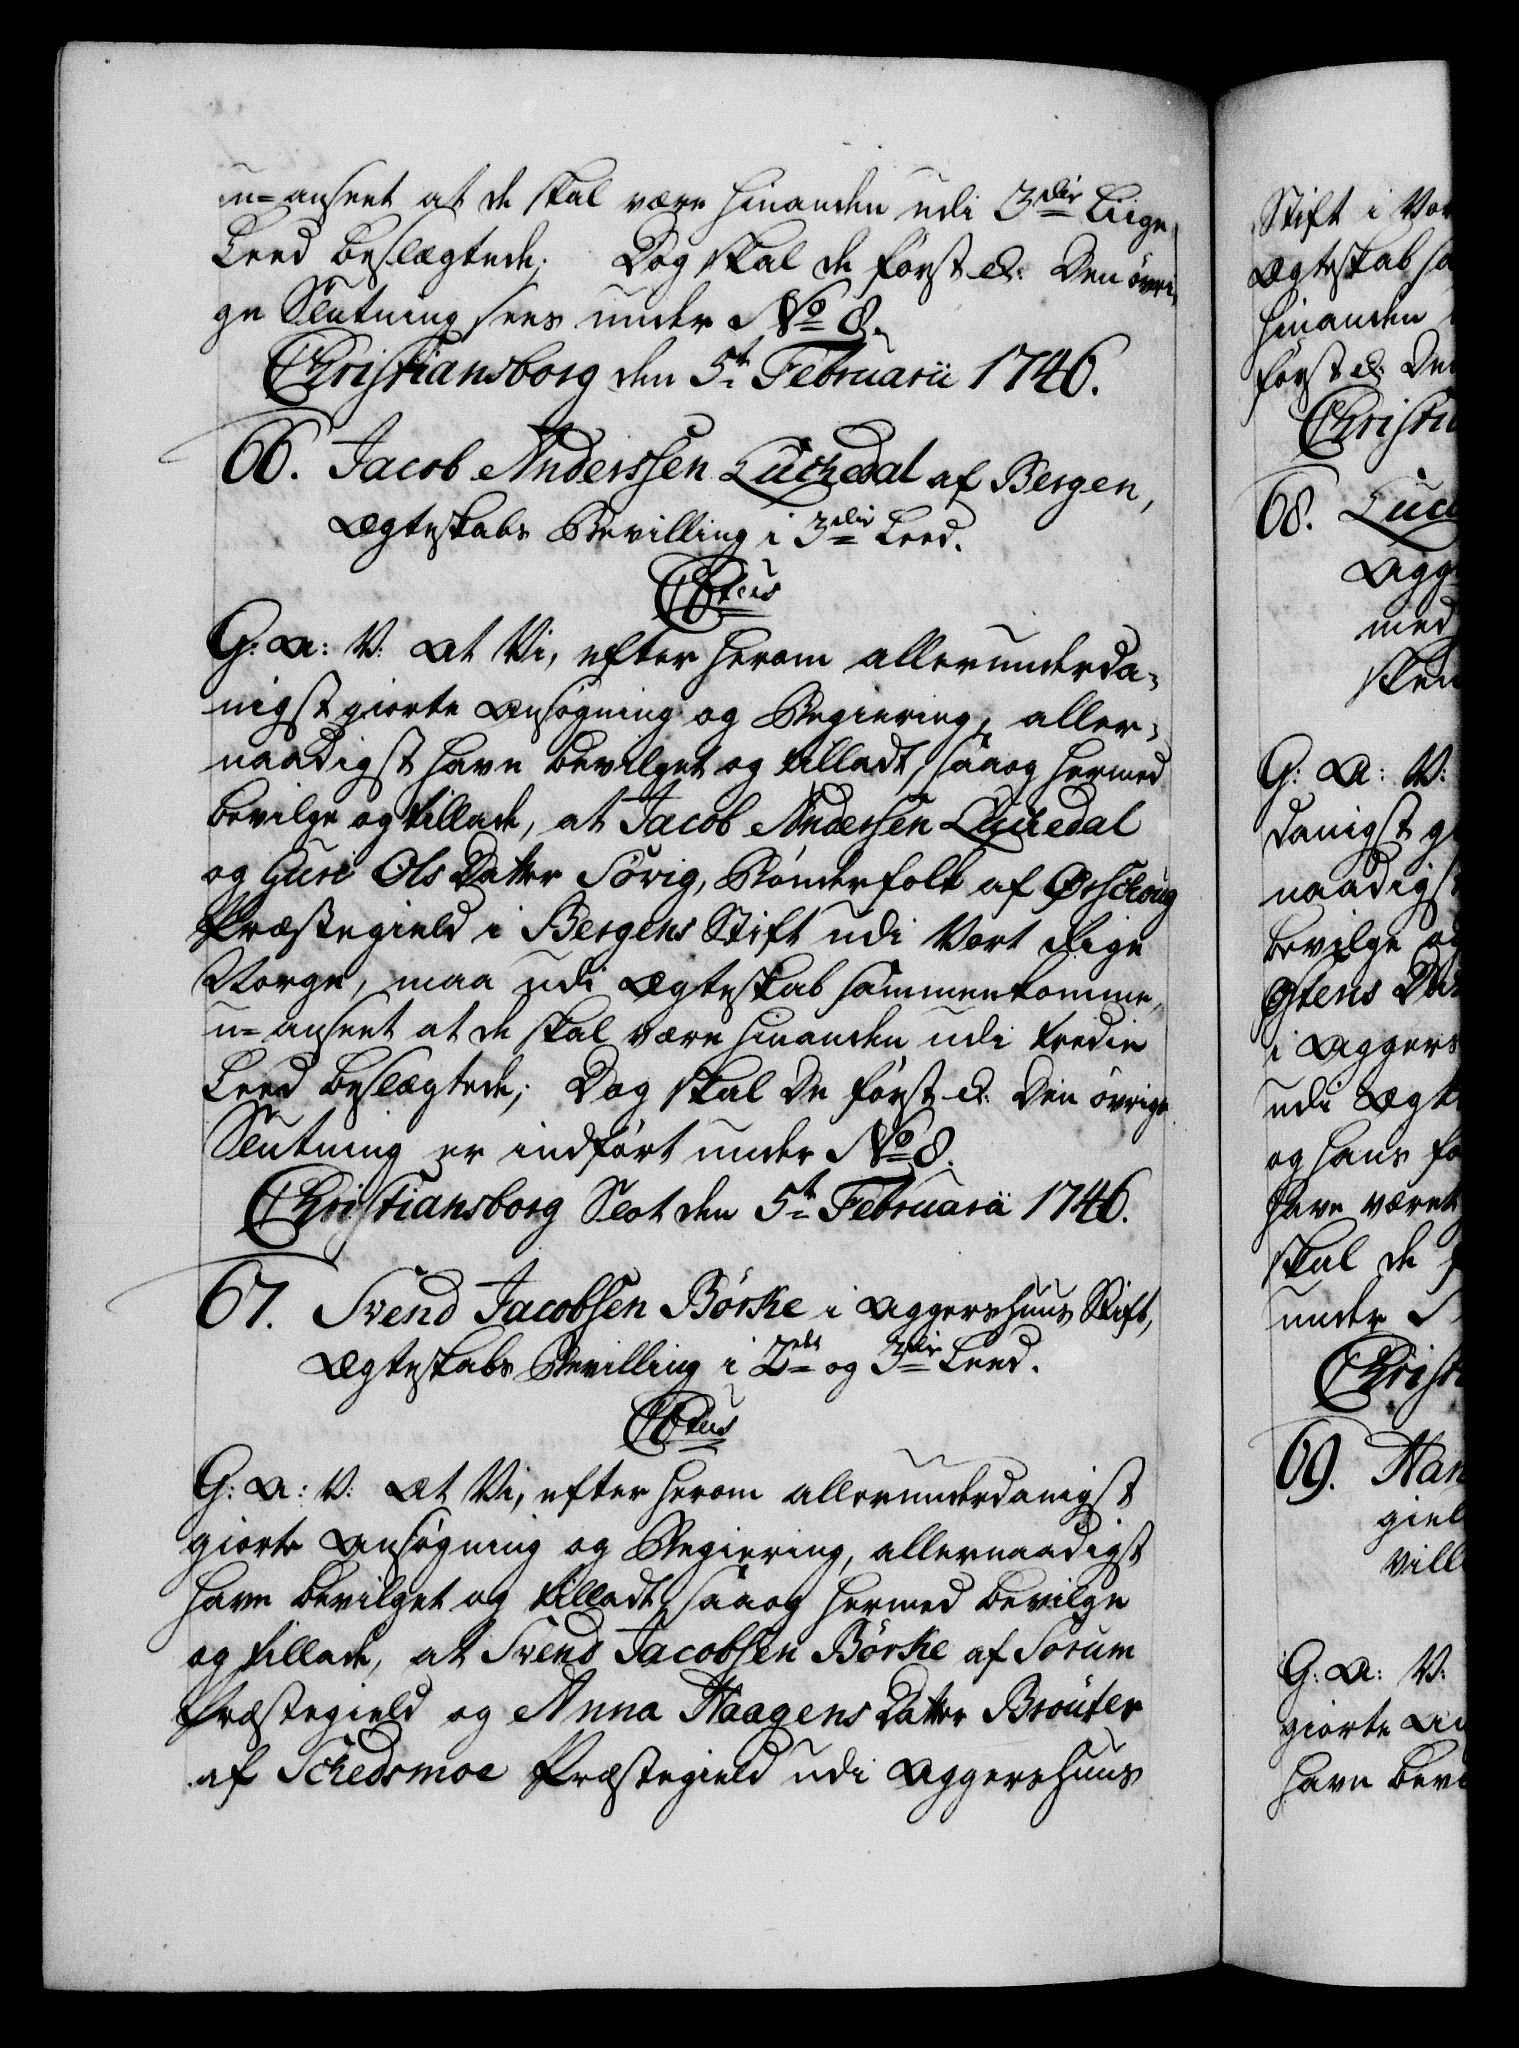 u-anseet at de skal være hinanden udi 3die Liige
Leed beslægtede; Dog skal de først &. Den övri-
ge Slutning sees under No 8.
Christiansborg den 5t Februarii 1746.
66. Jacob Anderssen Luchedal af Bergen,
Ægteskabs Bevilling i 3die Leed.
C6tus
G: A: V: At Vi, efter herom allerunderda-
nigst giorte Ansøgning og Begiering, aller-
naadigst have bevilget og tilladt, saa og hermed
bevilge og tillade, at Jacob Andersen Luchedal
og Guri Ols Datter Sörig, Bønderfolk af Ørschoug
Præstegield i Bergens Stift udi Vort Rige
Norge, maa udi Ægteskab sammenkomme,
u-anseet at de skal være hinanden udi tredie
Leed beslægtede; Dog skal De først &. Den övrige
Slutning er indført under No 8.
Christiansborg Slot den 5t Februarii 1746.
67. Svend Jacobsen Börke i Aggershuus Stift,
Ægteskabs Bevilling i 2det og 3die Leed.
C6tus
G: A: V: At Vi, efter herom allerunderdanigst
giorte Ansøgning og Begiering, allernaadigst
have bevilget og tilladt, saa og hermed bevilge
og tillade, at Svend Jacobsen Börke af Sorum
Præstegield og Anna Haagens Datter Brouter
af Schedsmoe Præstegield udi Aggershuus
Stift i Vor
Ægteskab sa
hinanden
først &. Den
Christi
68. Luc
Agg
med
sken
G: A: V:
danigst gi
naadigst
bevilge og
Ostens Dat
i Aggers
udi Ægt
og hans fo
have været
skal de f
under
Christi
69. Han
giel
vill
G: A: V:
giorte An
have bevi